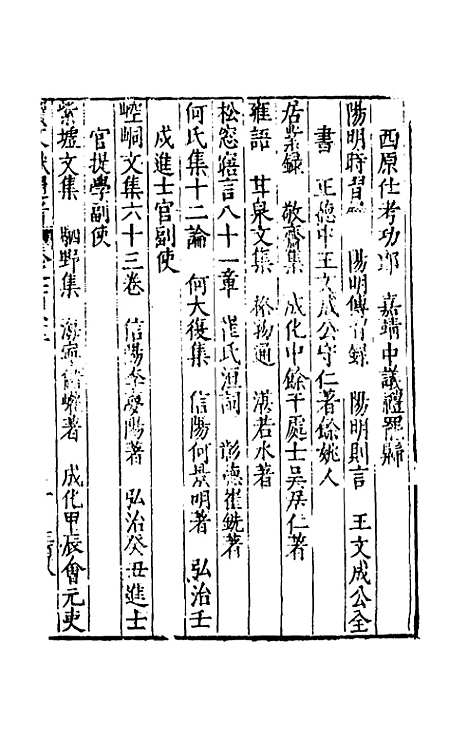 西原仕考功郎　嘉靖中議禮罷歸
陽明時習　陽明傳習錄　陽明則言　王文成公全
書　正德中王文成公守仁著餘姚人
居業録　敬齋集　成化中餘干處士吳居仁著
雍語　甘泉文集　格物通　湛若水著
松窓寤言八十一章　崔氏洹詞　彰德崔銑著
何氏集十二論　何大復集　信陽何景明著　弘治壬
戍進士官副使
崆峒文集六十三卷　信陽李夢陽著　弘治癸丑進士
官提學副使
紫墟文集　駉野集　海寧儲巏著　成化甲辰會元吏